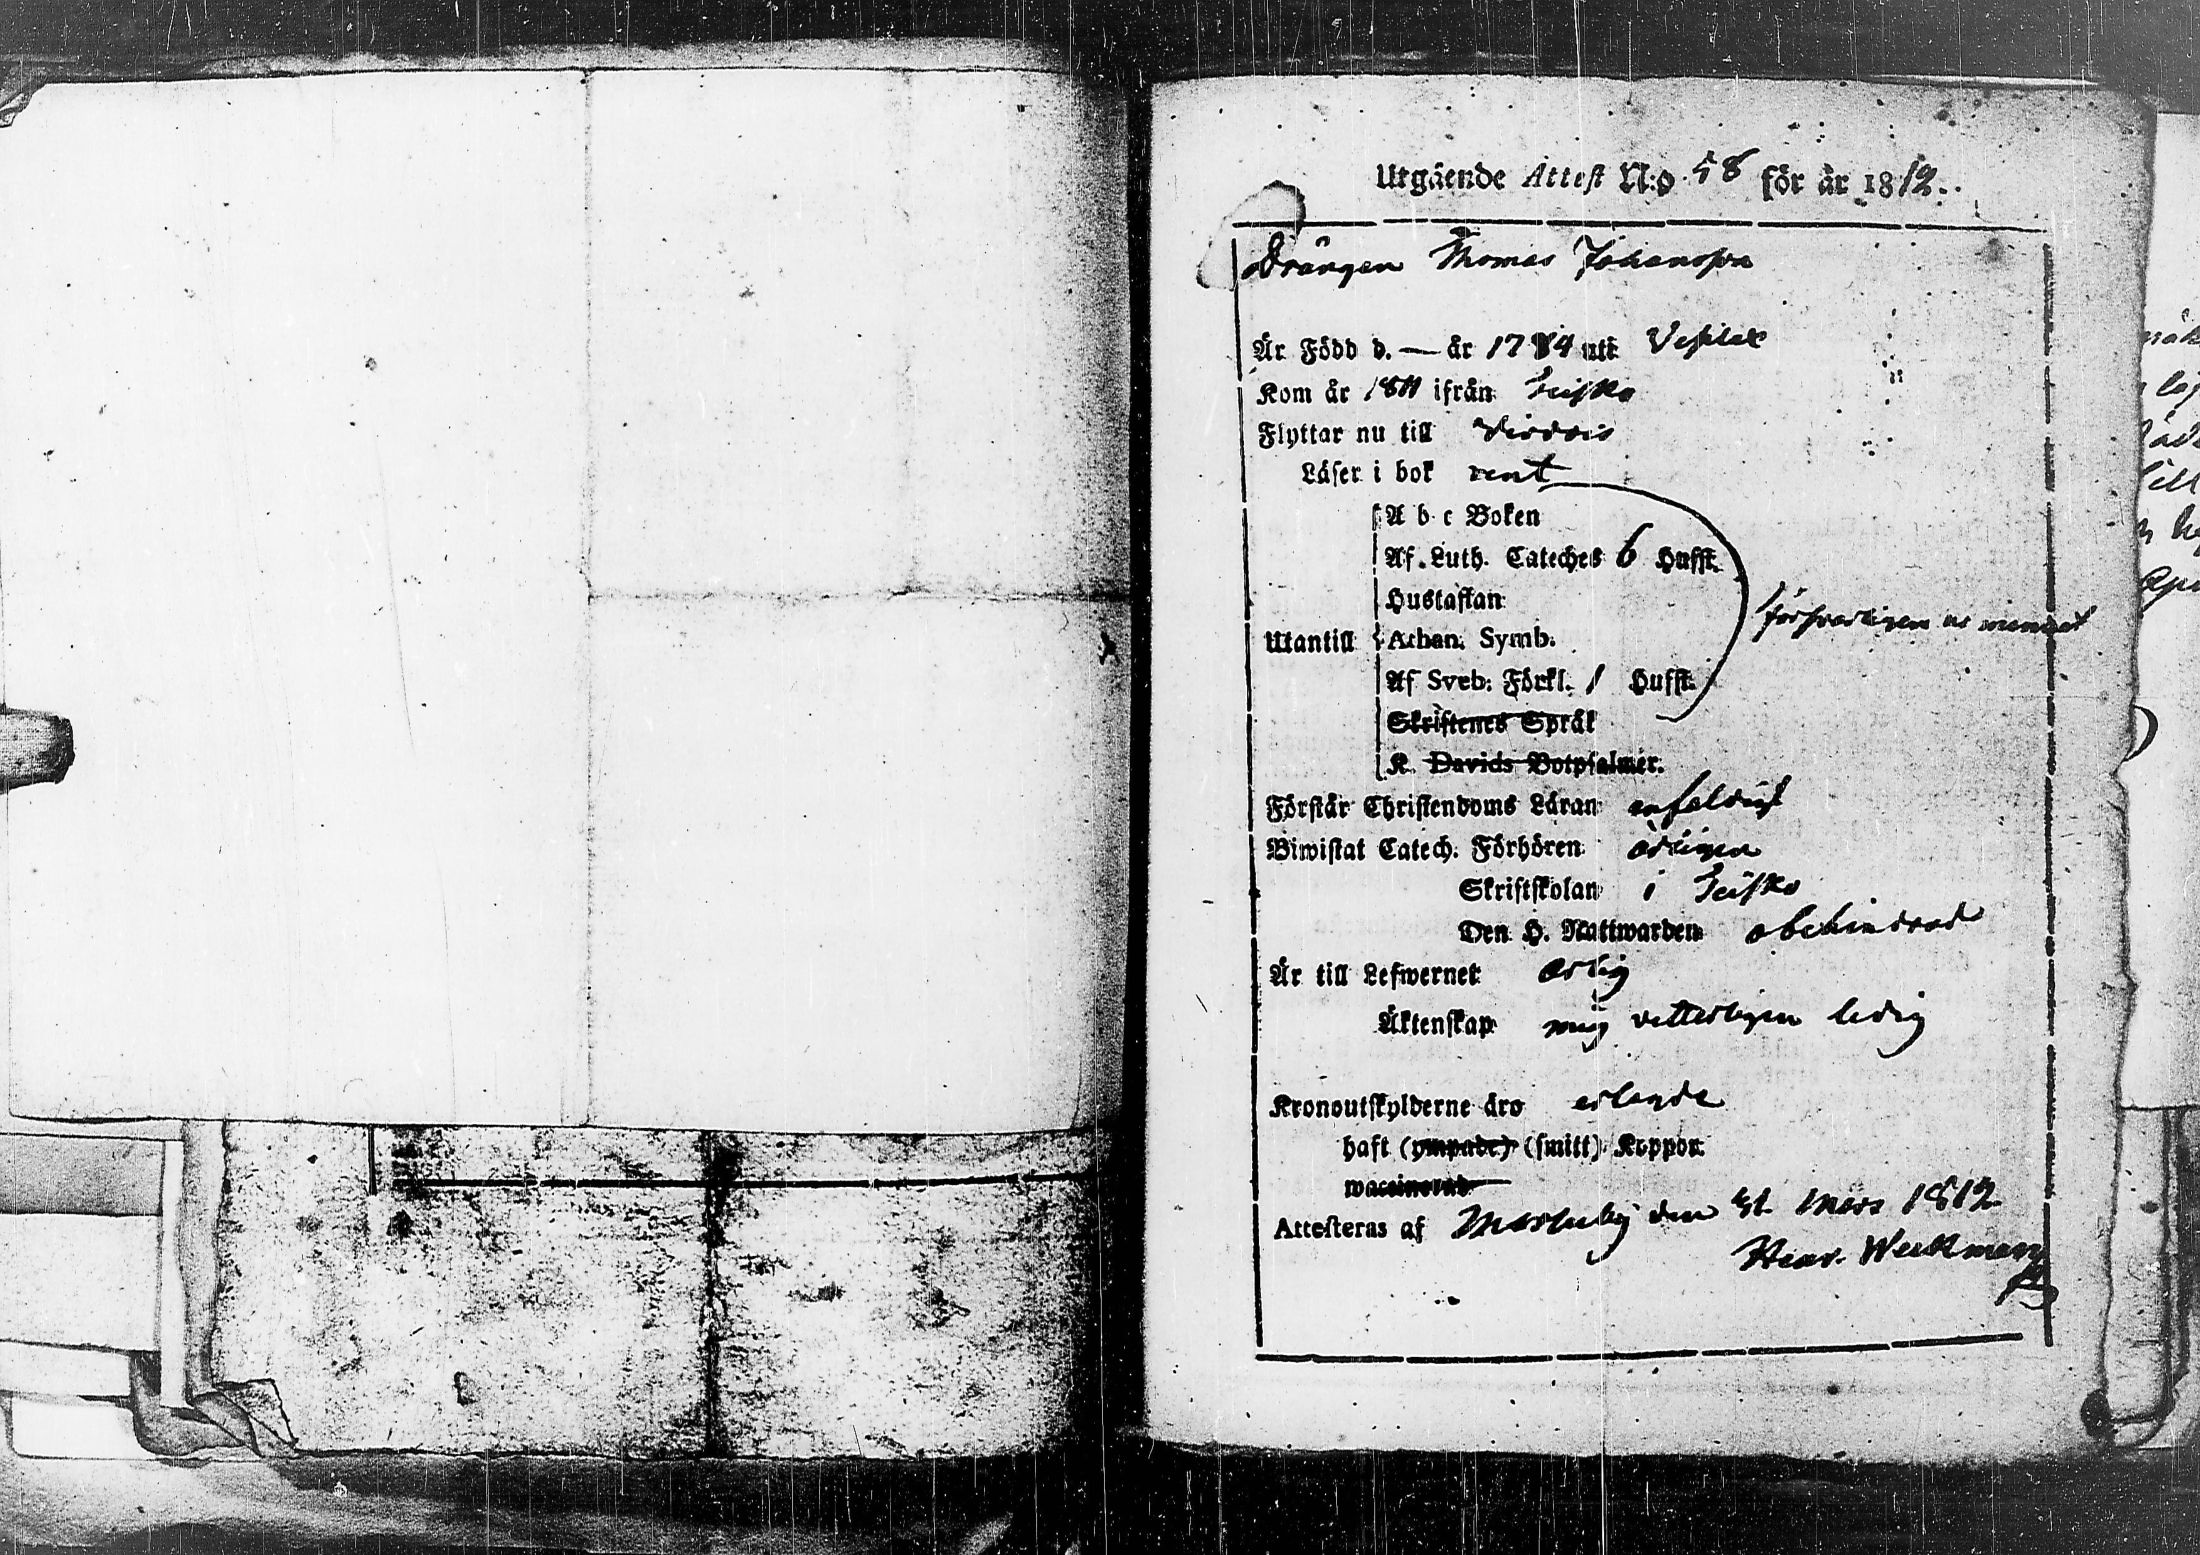 Utgående Attest N:o 58 för år 1812.
Drängen Thomas Johansson
Är Född d. — år 1784 uti
Kom år 1811 ifrån Teisko
Flyttar nu till Virdois
Läser i bok rent
A b c Boken
Af Luth. Cateches 6 Hufst.
Hustaflan
förswarligen ur minnet
Utantill Athan. Symb.
Af Sveb. Förkl. 1 Hufst.
Skriftenes Språk
K. Davids Botpsalmer.
Förstår Christendoms Läran enfaldigt
Biwistat Catech. Förhören årligen
Skriftskolan i Teisko
Den H. Nattwarden obehindrad
Är till Lefwernet ärlig
Äktenskap mig vetterligen ledig
Kronoutskylderne äro erlagde
haft (ympade) (smitt) Koppor.
waccinerad
Attesteras af den 31 Mars 1812
Henr. Weckman